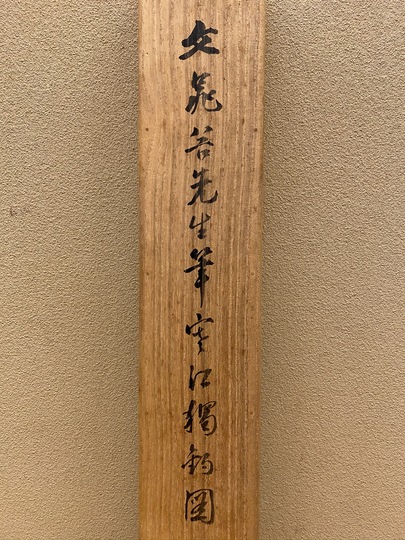 文晁谷先生筆寒江獨釣圖